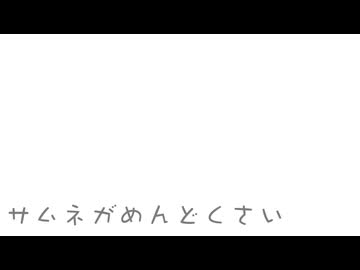 サムネがめんどくさい